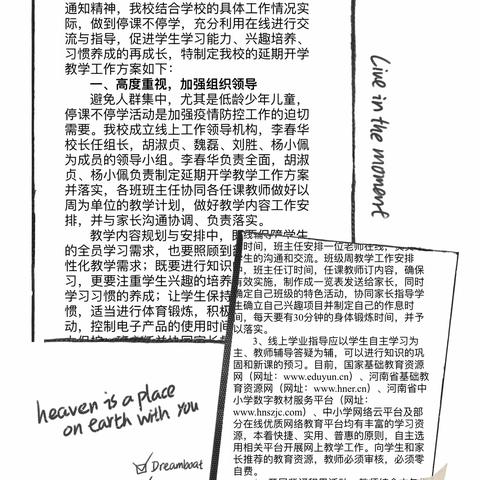 通知精神，我校结合学校的具体工作情况实
际，做到停课不停学，充分利用在线进行交
流与指导，促进学生学习能力、兴趣培养、
习惯养成的再成长，特制定我校的延期开学
教学工作方案如下：
一、高度重视，加强组织领导
避免人群集中，尤其是低龄少年儿童，
停课不停学活动是加强疫情防控工作的迫切
需要。我校成立线上工作领导机构，李春华
校长任组长，胡淑贞、魏磊、刘胜、杨小佩
为成员的领导小组。李春华负责全面，胡淑
贞、杨小佩负责制定延期开学教学工作方案
并落实，各班班主任协同各任课教师做好以
周为单位的教学计划，做好教学内容工作安
排，并与家长沟通协调、负责落实。
教学内容规划与安排中，既
的全员学习需求，也要照顾到
性化教学需求；既要进行知识
习，更要注重学生兴趣的培养
学习习惯的养成；让学生保持
惯，适当进行体育锻炼，积极
动，控制电子产品的使用时间
Live in the moment
时间，班主任安排一位老师在线，
学生的沟通和交流。班级周教学工作安排
中，班主任订时间，任课教师订内容，确保
有效实施，制作成一览表发送给家长，同时
确定自己班级的特色活动，协同家长指导学
生确立自己兴趣项目并制定自己的作息时
间，每天要有30分钟的身体锻炼时间，并予
以落实。
3、线上学业指导应以学生自主学习为
主、教师辅导答疑为辅，可以进行知识的巩
固和新课的预习。目前，国家基础教育资源
网（网址：www.eduyun.cn）、河南省基础教
育资源网（网址：www.hner.cn）、河南省中
小学数字教材服务平台（网址：
www.hnszjc.com）、中小学网络云平台及部
分在线优质网络教育平台均有丰富的学习资
源，本着快捷、实用、普惠的原则，自主选
用相关平台开展网上教学工作。向学生和家
长推荐的教育资源，教师必须审核，必须零
自费。
heaven is a place
on earth with you
Dreamboat